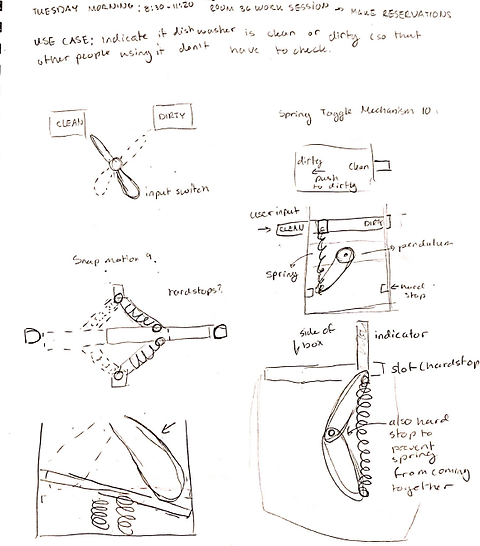 TUESDAY MORNING : 8:30-11:20 ROOM 36 WORK SESSION → MAKE RESERVATIONS
USE CASE: Indicate if dishwasher is clean or dirty (so that
other people using it don't have to check.
CLEAN
DIRTY
input switch
Spring Toggle Mechanism 10.
dirty
clean
push
to dirty
user input
CLEAN
DIRTY
pendulum
spring
hard
stop
Snap motion 9.
hardstops?
side of
box
indicator
slot/hardstop
also hard
stop to
prevent
spring
from coming
together